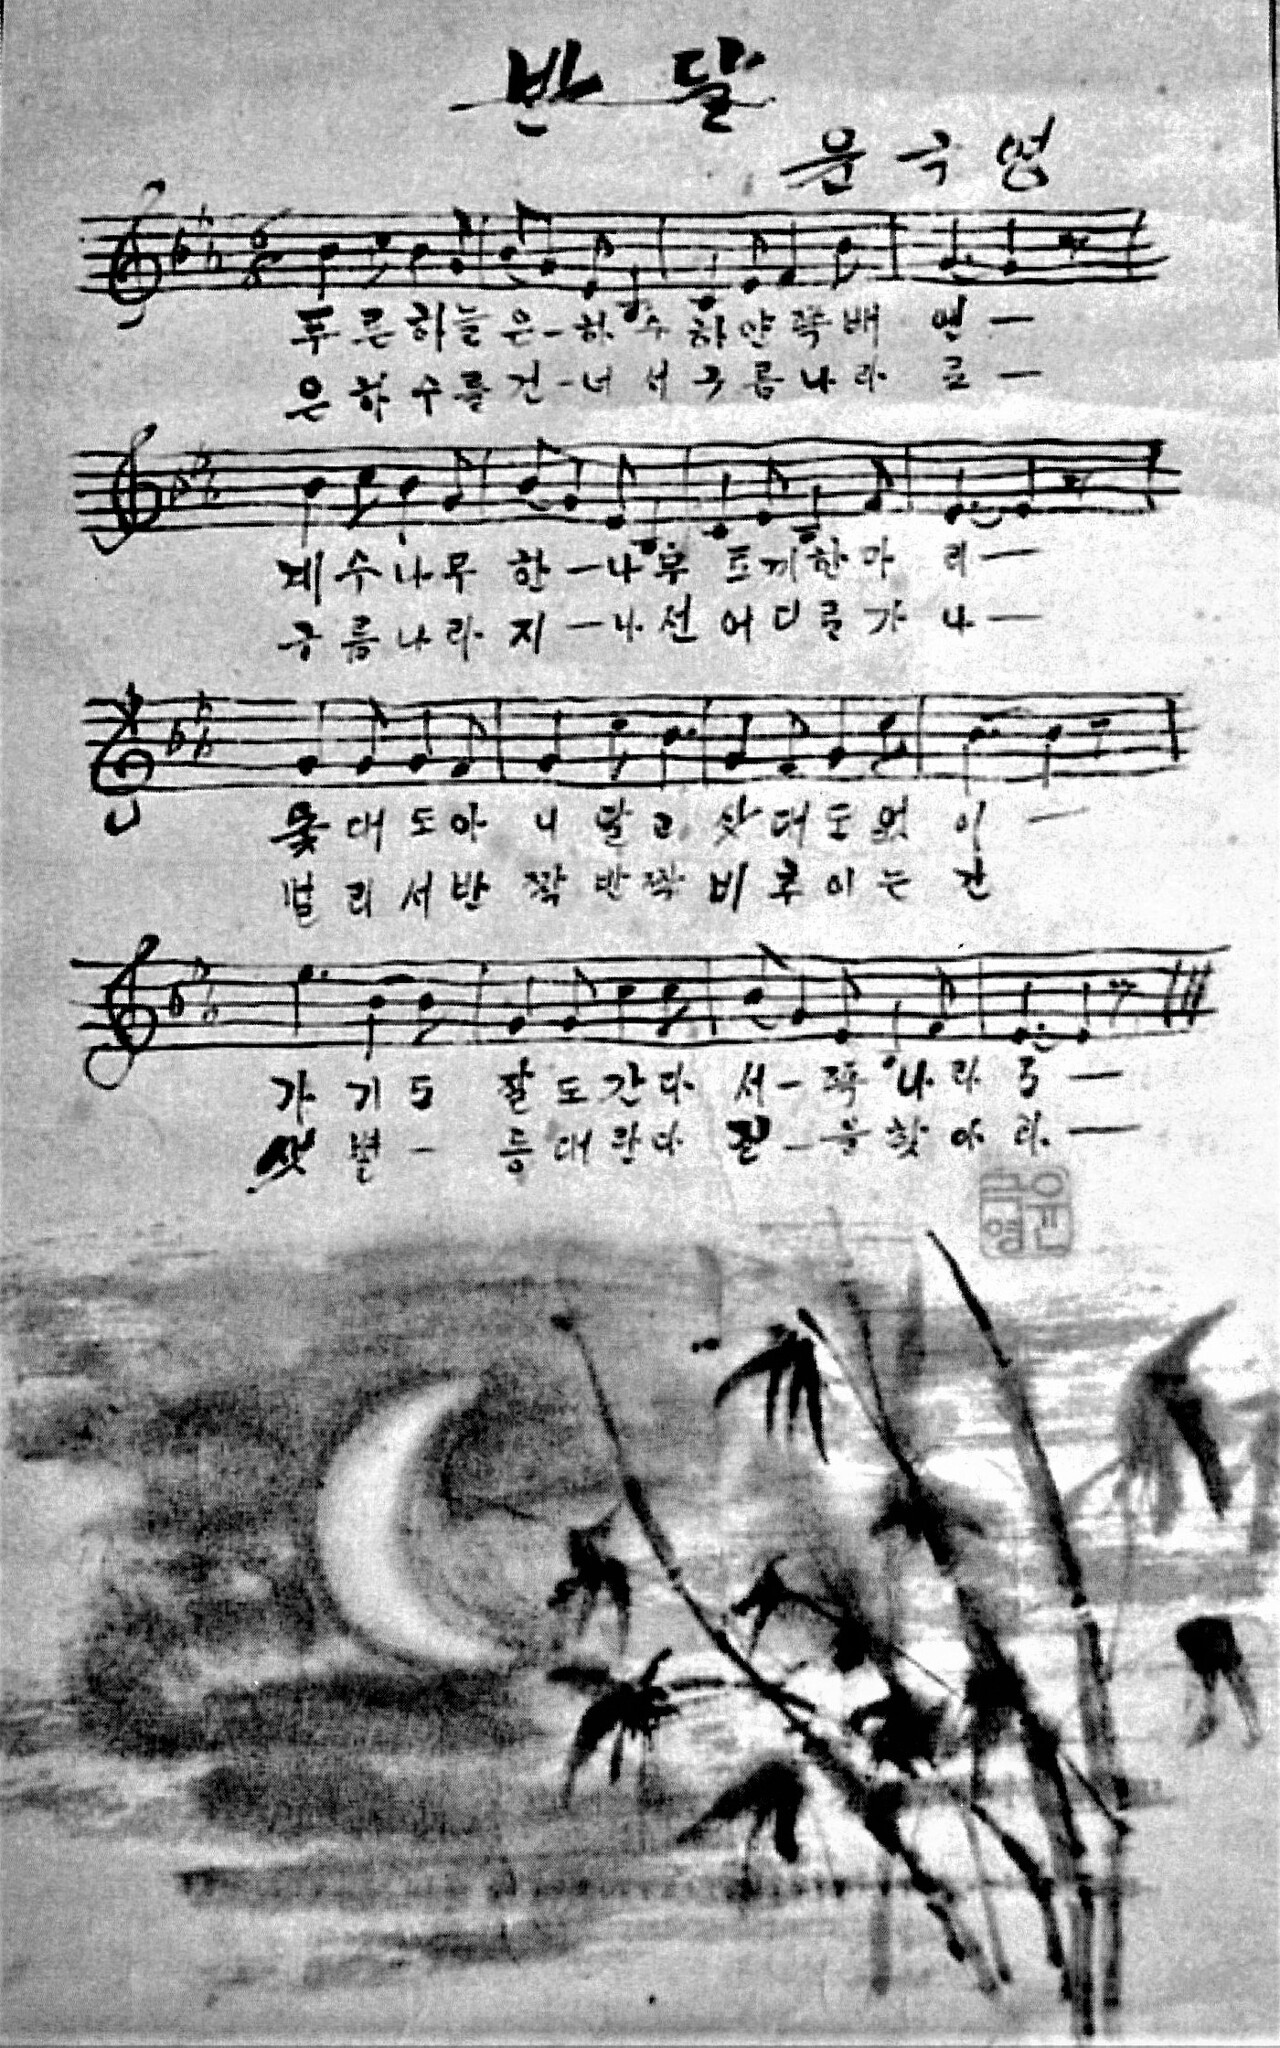 반달
윤극영
푸른하늘은-하수하얀쪽배엔—
은하수를건-너서구름나라로—
계수나무한—나무토끼한마리—
구름나라지—나선어디를가나—
돛대도아니달고삿대도없이—
멀리서반짝반짝비추이는건
가기도잘도간다서-쪽나라로—
샛별-등대란다길-을찾아라—
윤극영